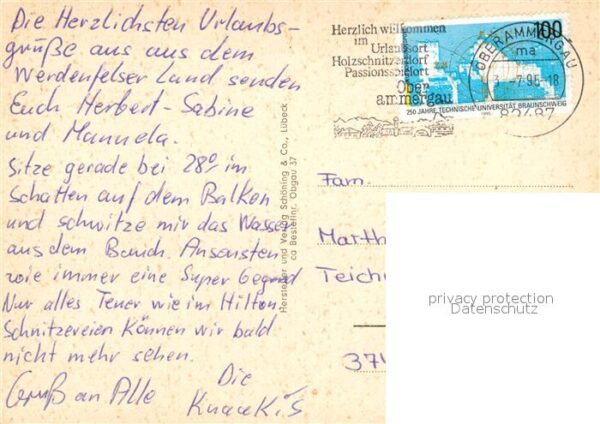 Die Herzlichsten Urlaubs-
grüße aus aus dem
Werdenfelser Land senden
Euch Herbert-Sabine
und Manuela.
Sitze gerade bei 28° im
Schatten auf dem Balkon
und schwitze mir das Wasser
aus dem Bauch. Ansonsten
wie immer eine Super Gegend
Nur alles Teuer wie im Hilton
Schnitzereien Können wir bald
nicht mehr sehen.
Gruß an Alle Die
Knauki's
Hersteller und Verlag Schöning & Co., Lübeck
Bestellnr. Obgau 37
Herzlich willkommen
im
Urlaubsort
Holzschnitzerdorf
Passionsspielort
Ober
ammergau
100
250 JAHRE TECHNISCHE UNIVERSITÄT BRAUNSCHWEIG
OBERAMMERGAU
ma
7.95-18
82487
Fam.
Marth
Teich
374
privacy protection
Datenschutz